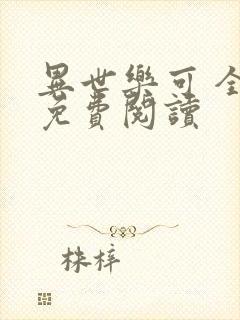 異世樂可全
免費閱讀
株梓